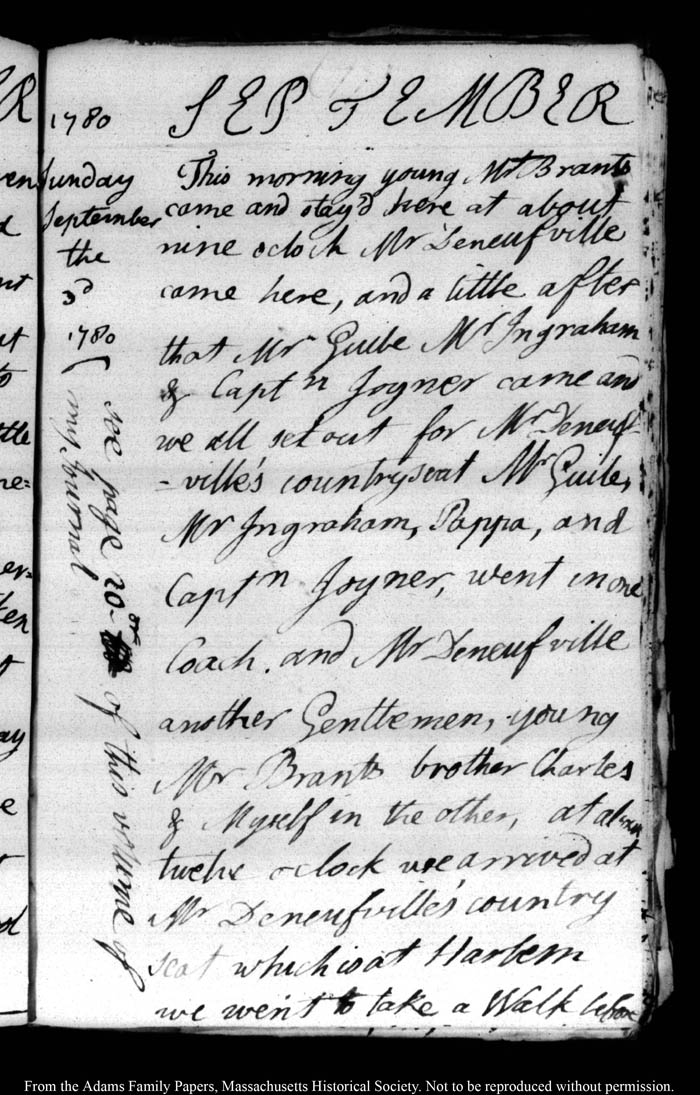 SEPTEMBER
1780
Sunday
September
the
3d
1780
This morning young Mr Brants
came and stay'd here at about
nine oclock Mr Deneufville
came here, and a little after
that Mr Guile Mr Ingraham
& Captn Joyner came and
we all set out for Mr Deneuf-
-ville's country seat Mr Guile,
Mr Ingraham, Pappa, and
Captn Joyner, went in one
Coach. and Mr Deneufville
another Gentlemen, young
Mr Brants brother Charles
& Myself in the other, at about
twelve oclock we arrived at
Mr Deneufville's country
seat which is at Harlem
we went to take a Walk before
see page 20 of this volume of
my Journal
From the Adams Family Papers, Massachusetts Historical Society. Not to be reproduced without permission.